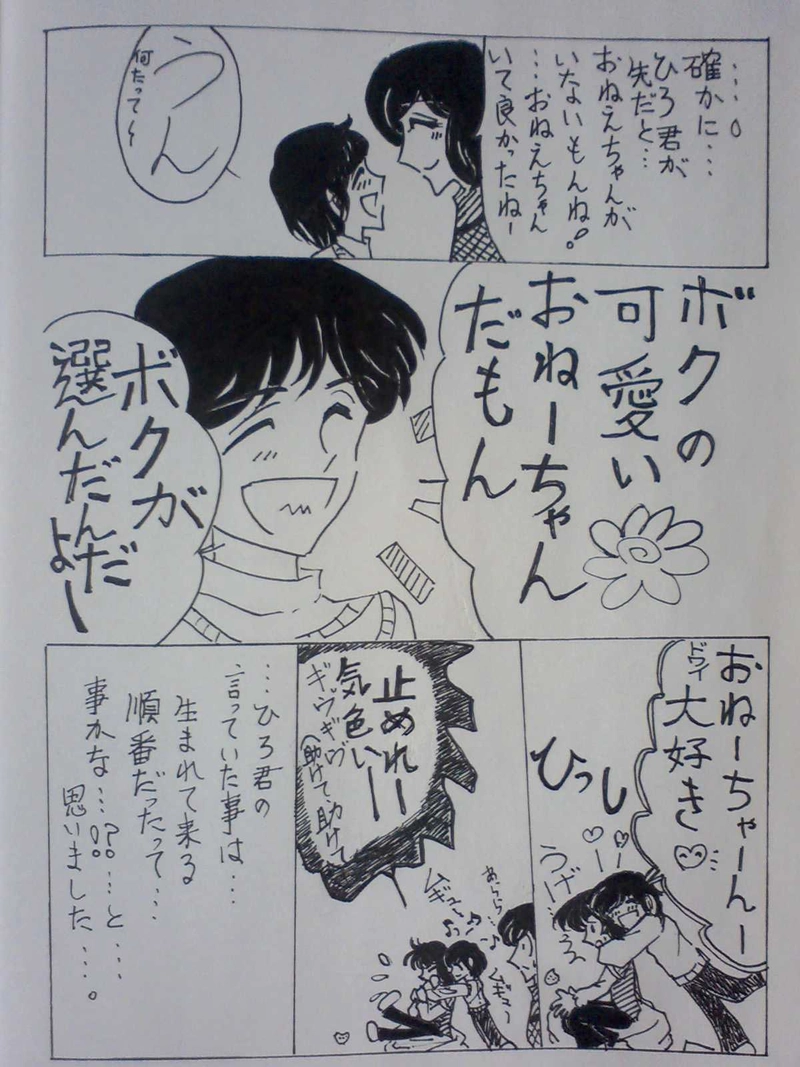 …。
確かに…
ひろ君が
先だと…
おねえちゃんが
いないもんね!
…おねえちゃん
いて良かったねー
うん
何たって〜
ボクの
可愛い
おねーちゃん
だもん
ボクが
選んだんだ
よー
おねーちゃーんー
大好き
ひっし
うげー
止めれー
気色いー
ギヴギヴ
(助けて、助けて
あらら…
…ひろ君の
言っていた事は…
生まれて来る
順番だったって…
事かな…!?…と…
思いました…。